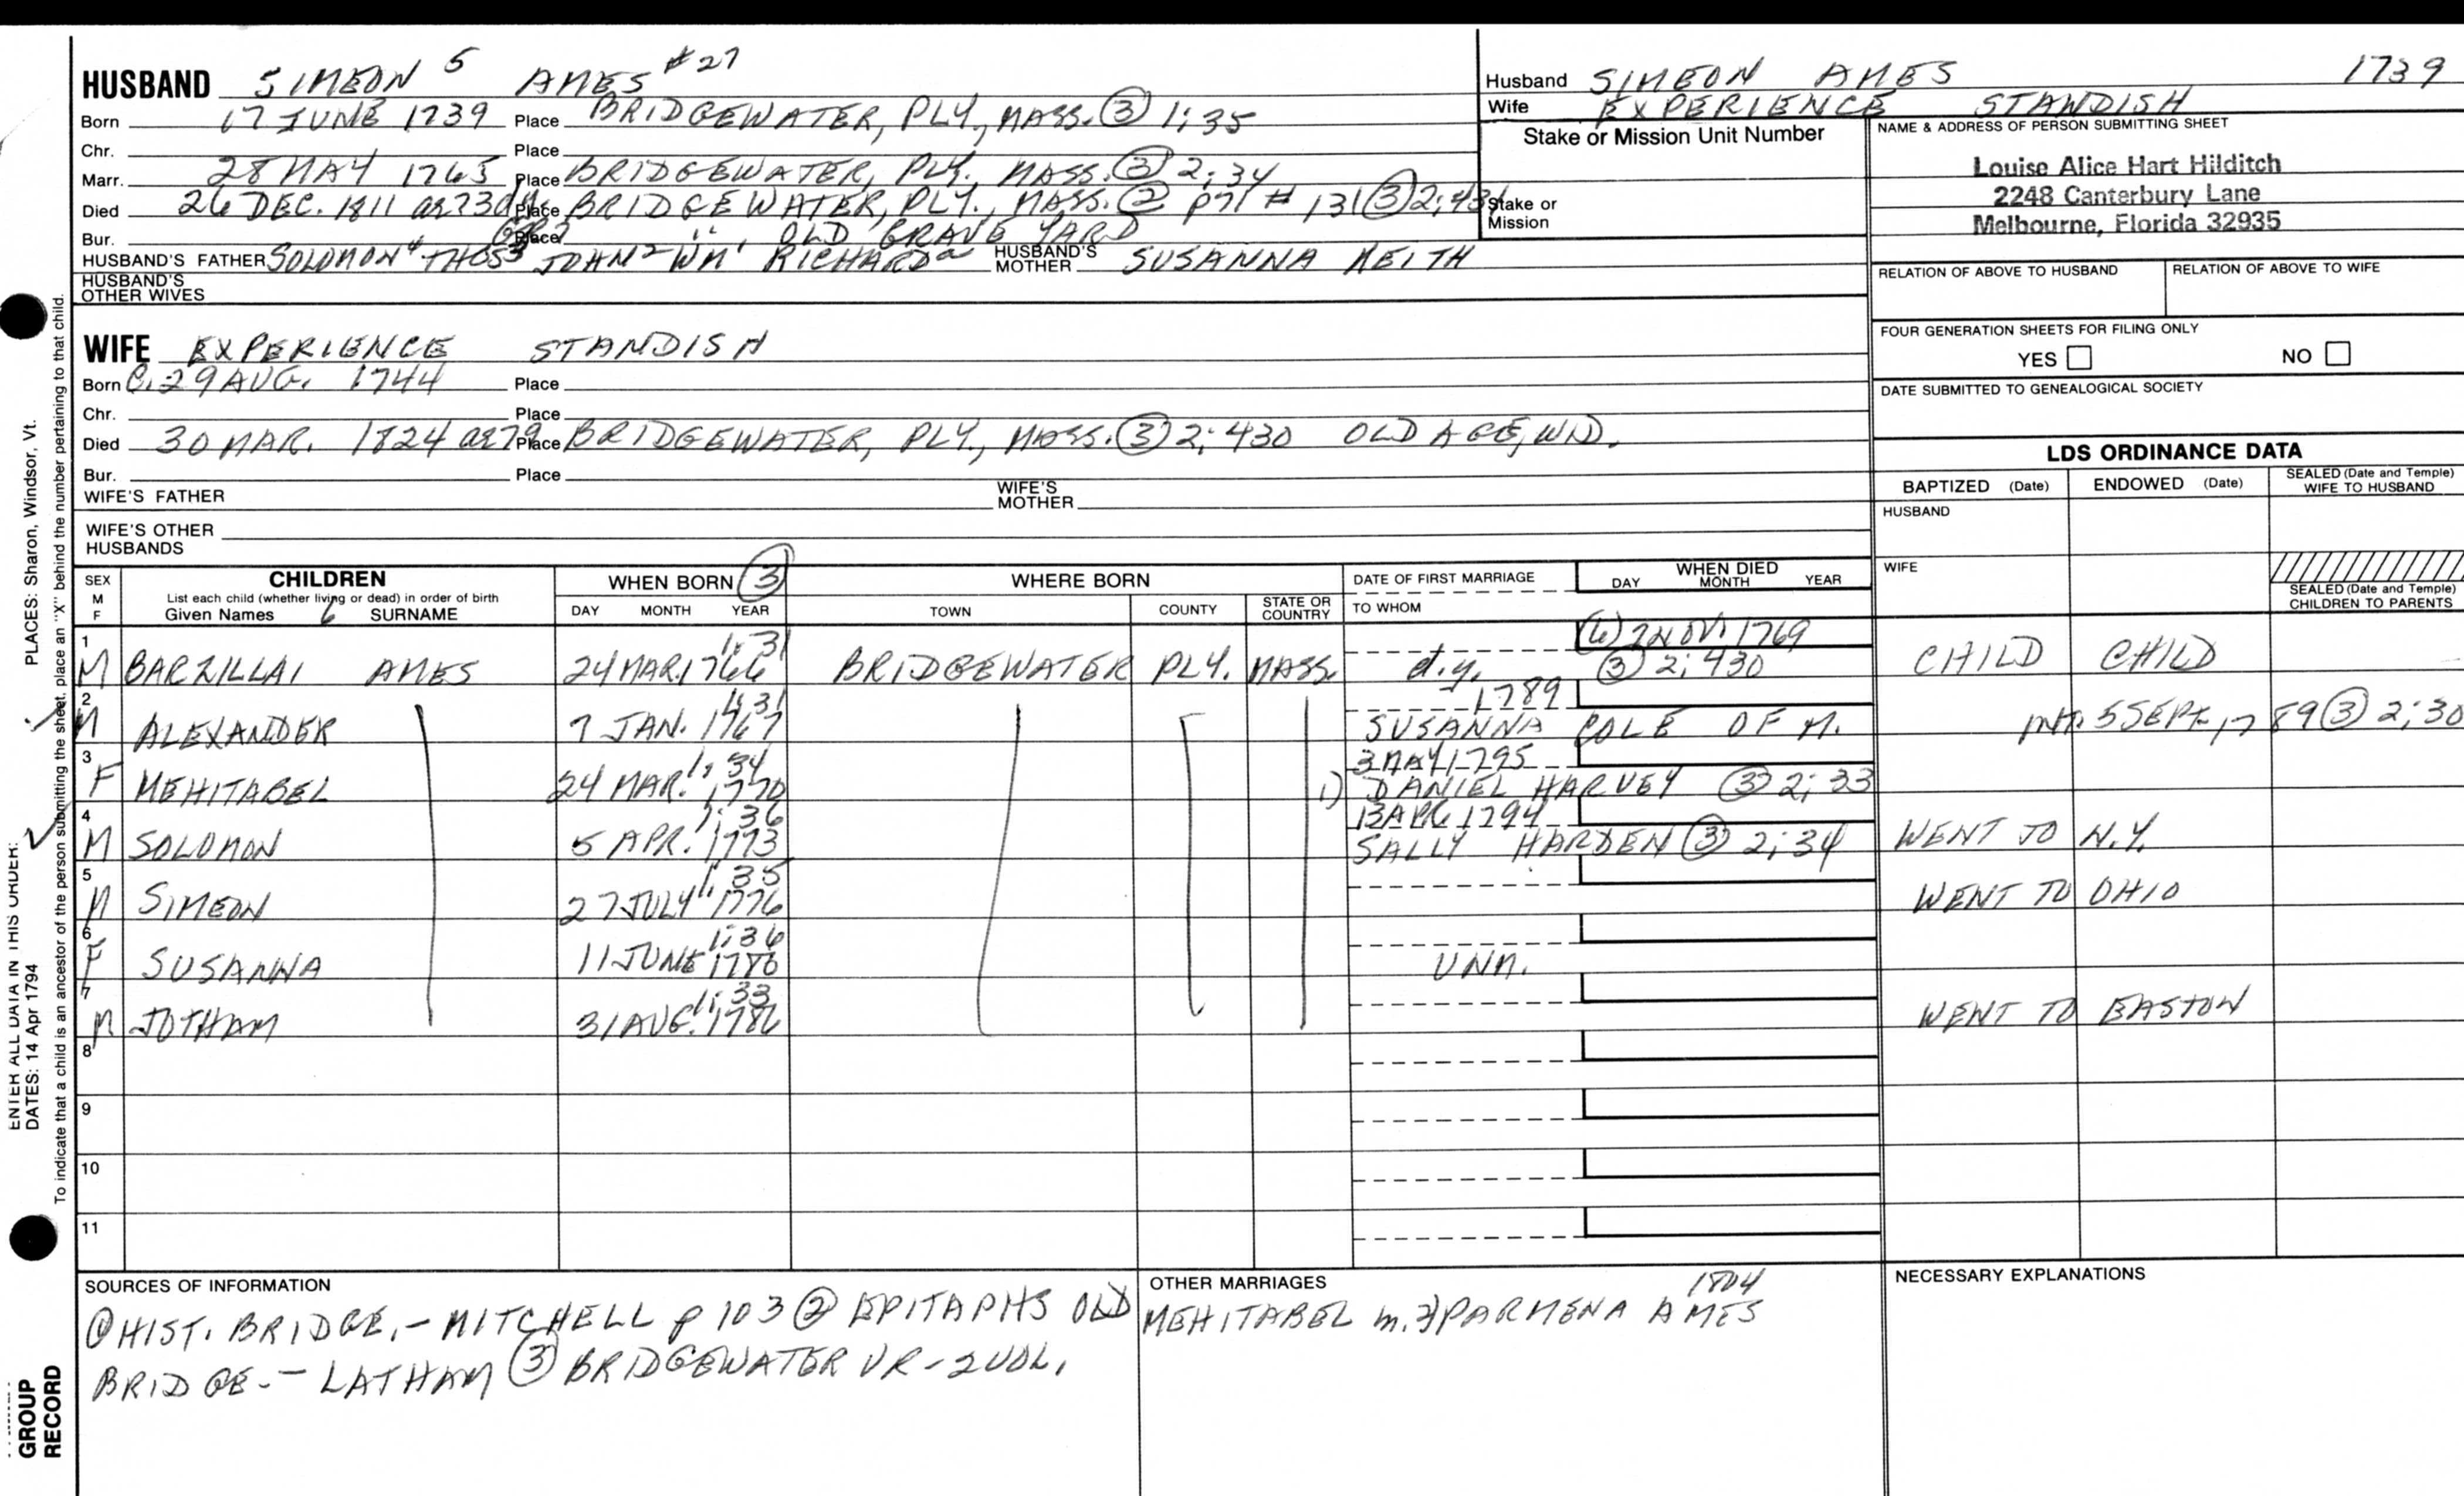 HUSBAND SIMEON 5 AMES #27
Born 17 JUNE 1739 Place BRIDGEWATER, PLY., MASS. (3) 1:35
Chr. Place
Marr. 28 MAY 1765 Place BRIDGEWATER, PLY. MASS. (3) 2:34
Died 26 DEC. 1811 ae 73 Place BRIDGEWATER, PLY., MASS. (2) p71 # 131 (3) 2:431
Bur. Place " OLD GRAVE YARD
HUSBAND'S FATHER SOLOMON4 THOS3 JOHN2 WM1 RICHARDa HUSBAND'S MOTHER SUSANNA KEITH
HUSBAND'S OTHER WIVES
WIFE EXPERIENCE STANDISH
Born C. 29 AUG. 1744 Place
Chr. Place
Died 30 MAR. 1824 ae 79 Place BRIDGEWATER, PLY., MASS. (3) 2:430 OLD AGE, WID.
Bur. Place
WIFE'S FATHER WIFE'S MOTHER
WIFE'S OTHER HUSBANDS
Husband SIMEON AMES 1739
Wife EXPERIENCE STANDISH
Stake or Mission Unit Number
Stake or Mission
NAME & ADDRESS OF PERSON SUBMITTING SHEET
Louise Alice Hart Hilditch
2248 Canterbury Lane
Melbourne, Florida 32935
RELATION OF ABOVE TO HUSBAND RELATION OF ABOVE TO WIFE
FOUR GENERATION SHEETS FOR FILING ONLY
YES NO
DATE SUBMITTED TO GENEALOGICAL SOCIETY
LDS ORDINANCE DATA
BAPTIZED (Date) ENDOWED (Date) SEALED (Date and Temple) WIFE TO HUSBAND
HUSBAND
WIFE
SEALED (Date and Temple) CHILDREN TO PARENTS
SEX M F CHILDREN WHEN BORN (3) WHERE BORN DATE OF FIRST MARRIAGE WHEN DIED
List each child (whether living or dead) in order of birth
Given Names 6 SURNAME DAY MONTH YEAR TOWN COUNTY STATE OR COUNTRY TO WHOM DAY MONTH YEAR
1 1:31 2 NOV. 1769
M BARZILLAI AMES 24 MAR. 1766 BRIDGEWATER PLY. MASS. d.y. (3) 2:430 CHILD CHILD
2 1:31 1789
M ALEXANDER 7 JAN. 1767 SUSANNA COLE OF M. INT. 5 SEPT. 1789 (3) 2:30
3 1:34 3 MAY 1795
F MEHITABEL 24 MAR. 1770 1) DANIEL HARVEY (3) 2:33
4 1:36 1794
M SOLOMON 5 APR. 1773 SALLY HARDEN (3) 2:34 WENT TO N.Y.
5 1:35
M SIMEON 27 JULY 1776 WENT TO OHIO
6 1:36
F SUSANNA 11 JUNE UNM.
7 1:33
M JOTHAM 31 AUG. WENT TO EASTON
8
9
10
11
SOURCES OF INFORMATION
(1) HIST. BRIDGE. - MITCHELL p 103 (2) EPITAPHS OLD
BRIDGE. - LATHAM (3) BRIDGEWATER VR - 2 VOL.
OTHER MARRIAGES
1804
MEHITABEL m. 2) PARMENA AMES
NECESSARY EXPLANATIONS
ENTER ALL DATA IN THIS ORDER:
DATES: 14 Apr 1794
PLACES: Sharon, Windsor, Vt.
To indicate that a child is an ancestor of the person submitting the sheet, place an "X" behind the number pertaining to that child.
GROUP
RECORD